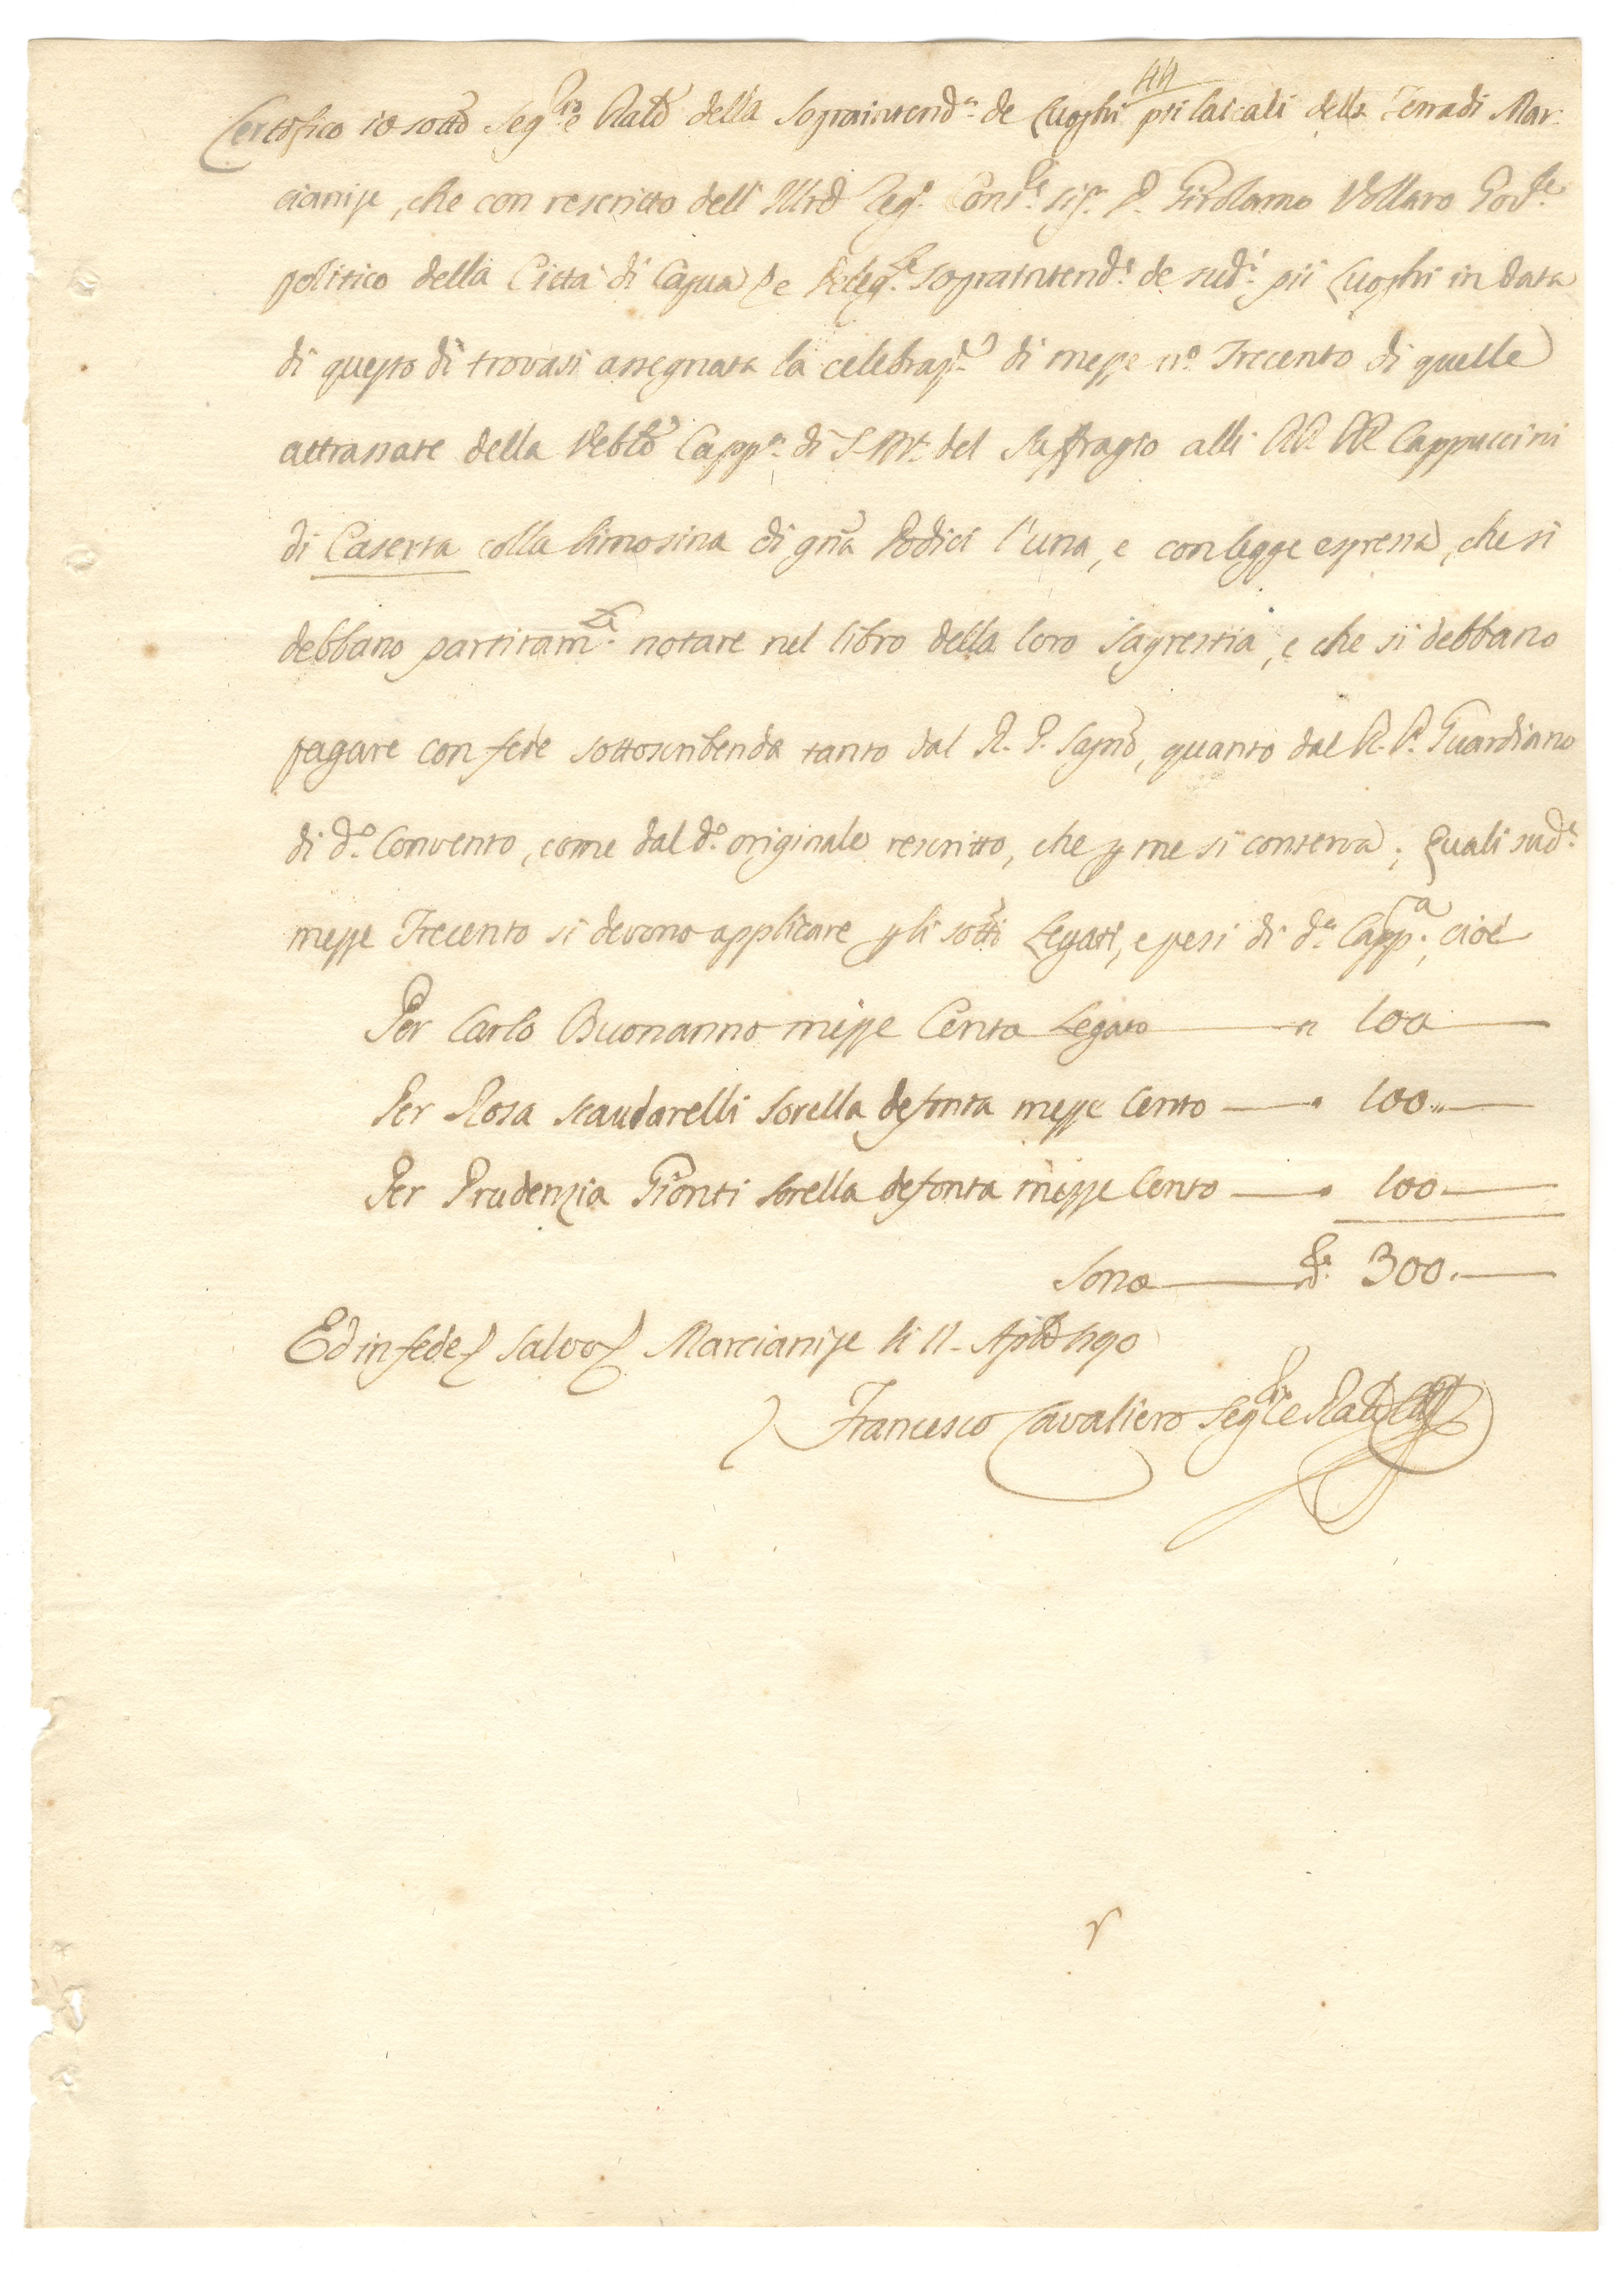 44
Certifico io sottõ Seg.rio e Raõ della Sopraintend.a de Luoghi pii laicali della Terra di Mar-
cianise, che con rescritto dell' Illrẽ Reg.o Cons.re Sig.r D. Girolamo Vollaro Gov.re
politico della Città di Capua, e Deleg.to Sopraintend.e de sud.i pii Luoghi in data
di questo dì trovasi assegnata la celebraz.e di messe n.o Trecento di quelle
attrassate della Veñle Capp.a di S. M.a del Suffragio alli RR. PP. Cappuccini
di Caserta colla limosina di gña Dodici l'una, e con legge espressa, che si
debbano partitam.te notare nel libro della loro Sagrestia, e che si debbano
pagare con fede sottoscribenda tanto dal R. P. Sagño, quanto dal R. P.e Guardiano
di d.o Convento, come dal d.o originale rescritto, che p me si conserva; Quali sud.e
messe Trecento si devono applicare p li sotti Legati, e pesi di d.a Capp.a, cioè
Per Carlo Buonanno messe Cento Legato — n 100 —
Per Rosa Scaudarelli Sorella defonta messe Cento — 100 —
Per Prudenzia Gionti Sorella defonta messe Cento — 100 —
Sono — 300. —
Ed in fede salvo Marcianise li 11. Aplẽ 1790
Francesco Cavaliero Seg.rio e Raõ